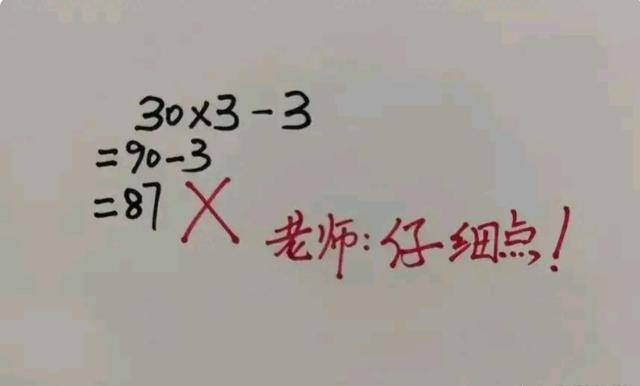 30×3-3
=90-3
=87 ×
老师:仔细点!